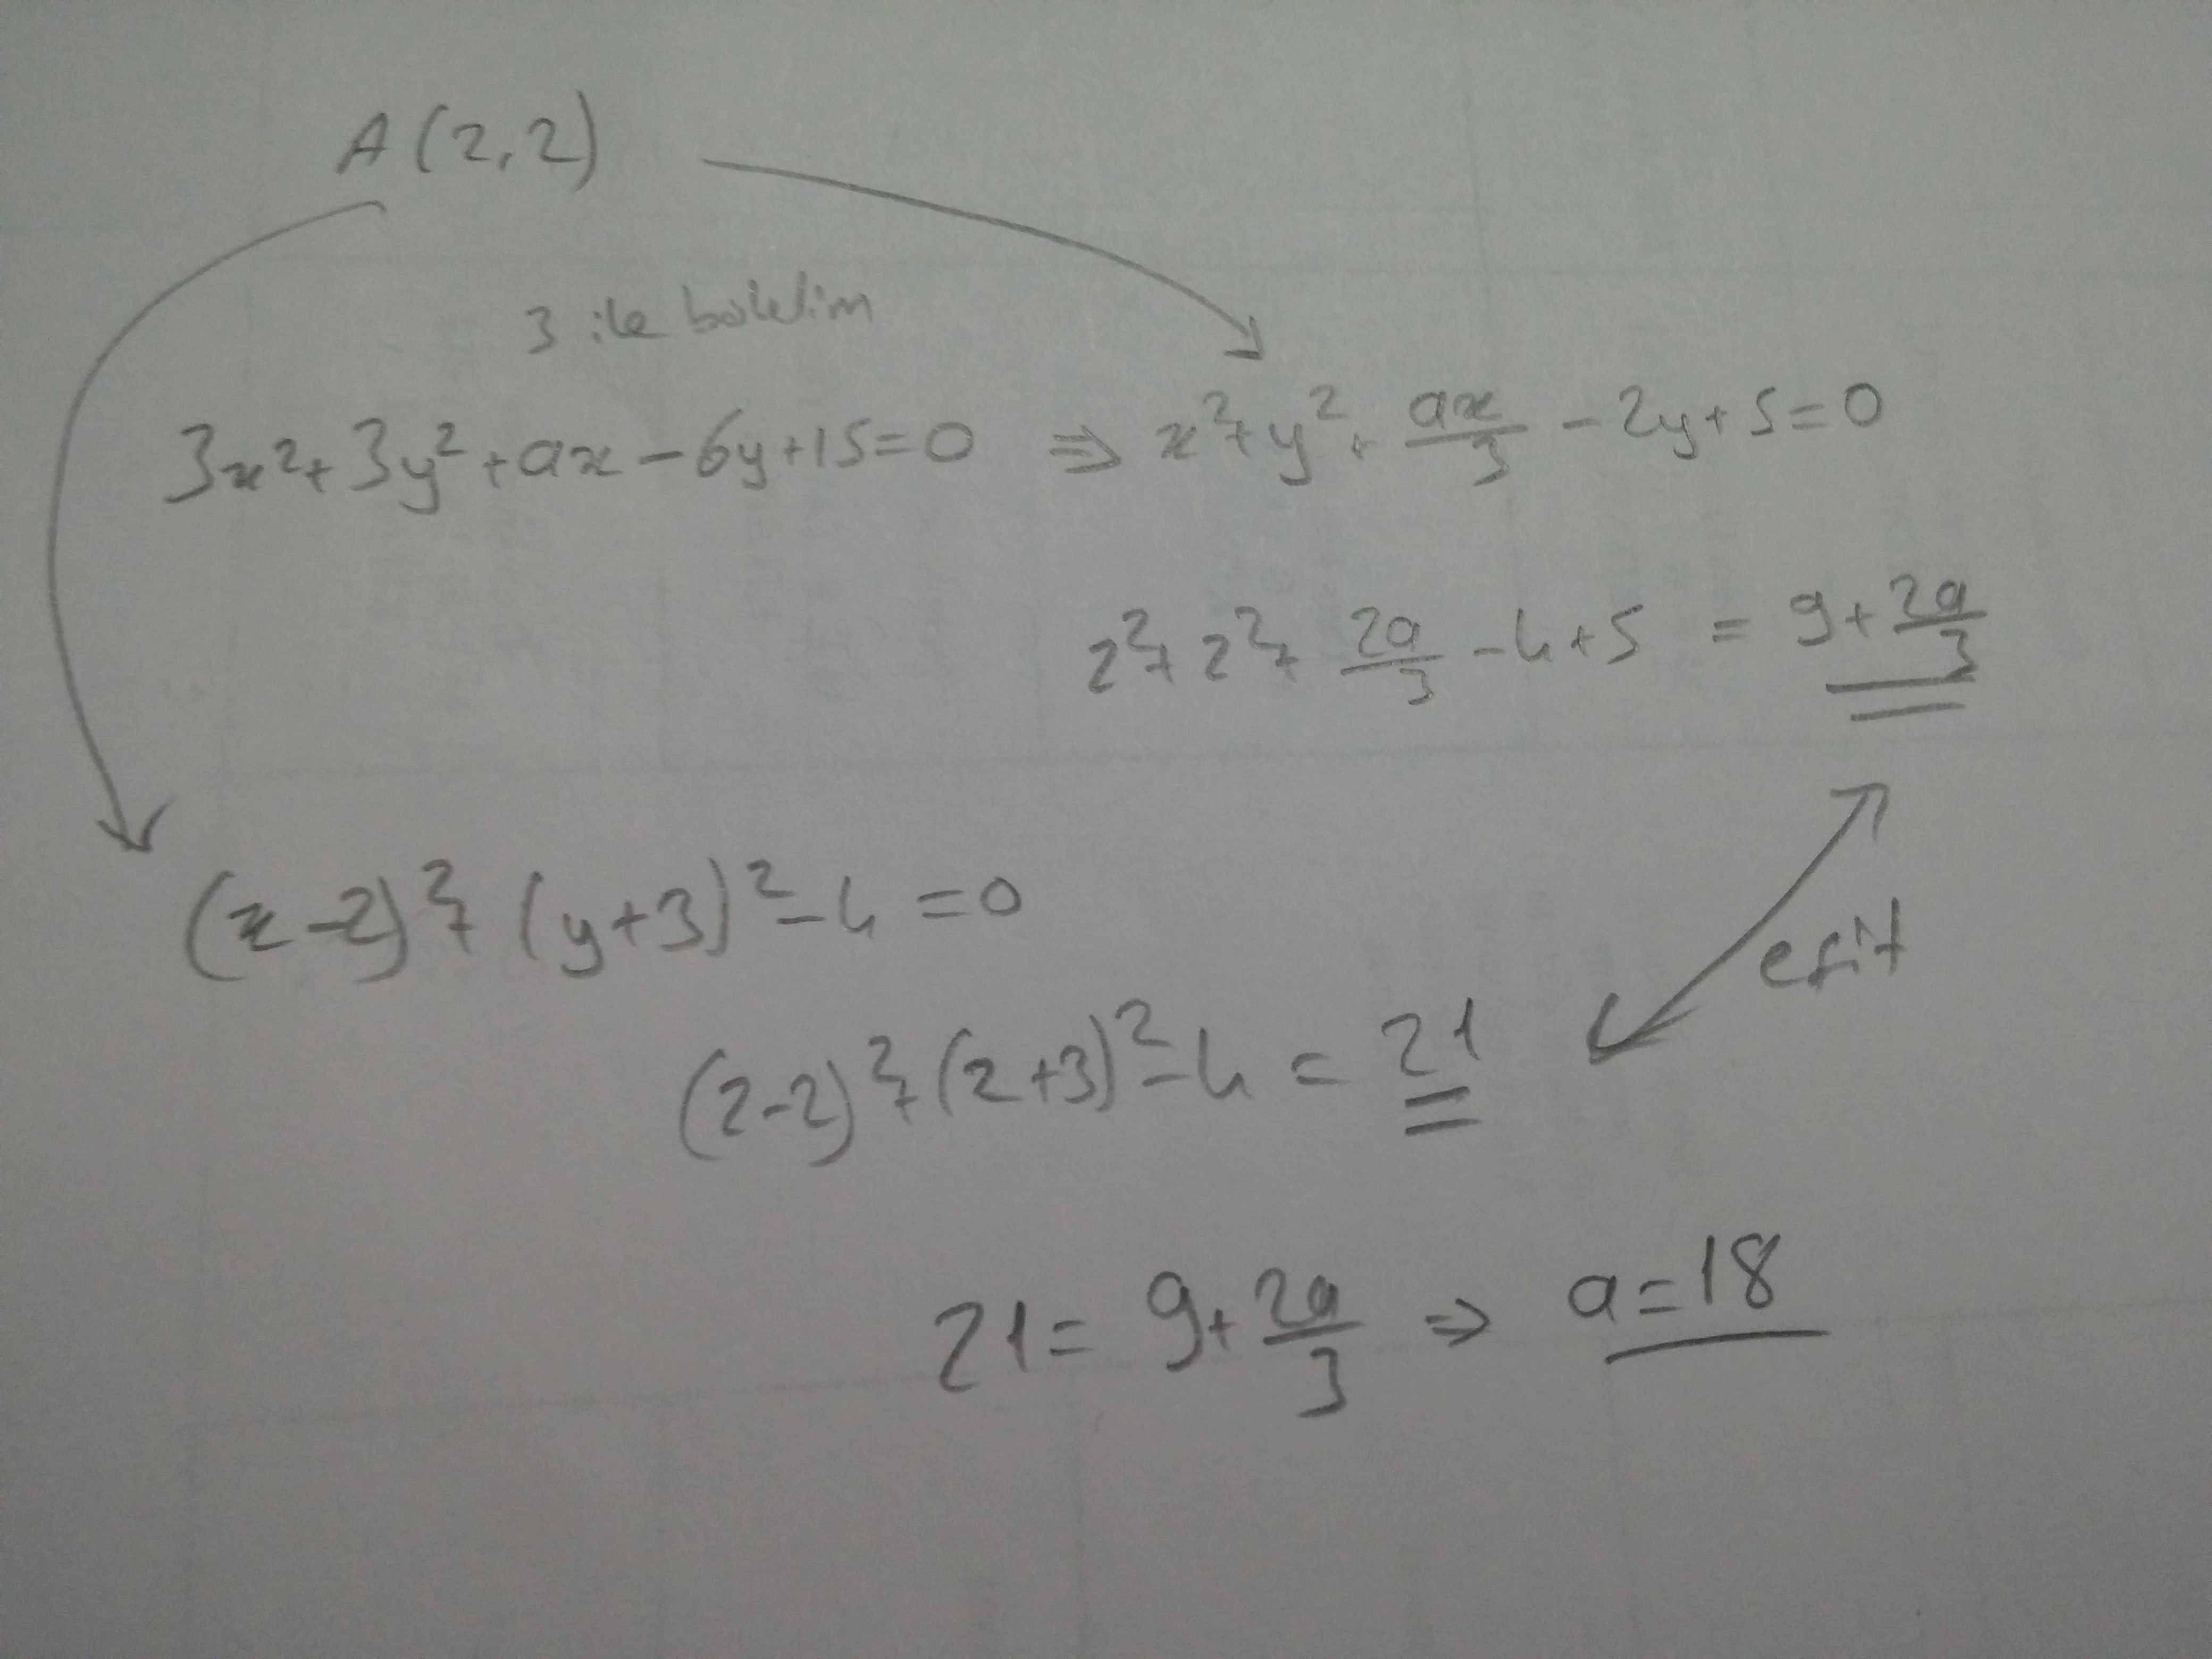 A(2,2)
3 ile bölelim
3x²+3y²+ax-6y+15=0 ⇒ x²+y²+ax/3-2y+5=0
2²+2²+2a/3-4+5 = 9+2a/3
(x-2)²+(y+3)²-4=0
eşit
(2-2)²+(2+3)²-4=21
21=9+2a/3 ⇒ a=18